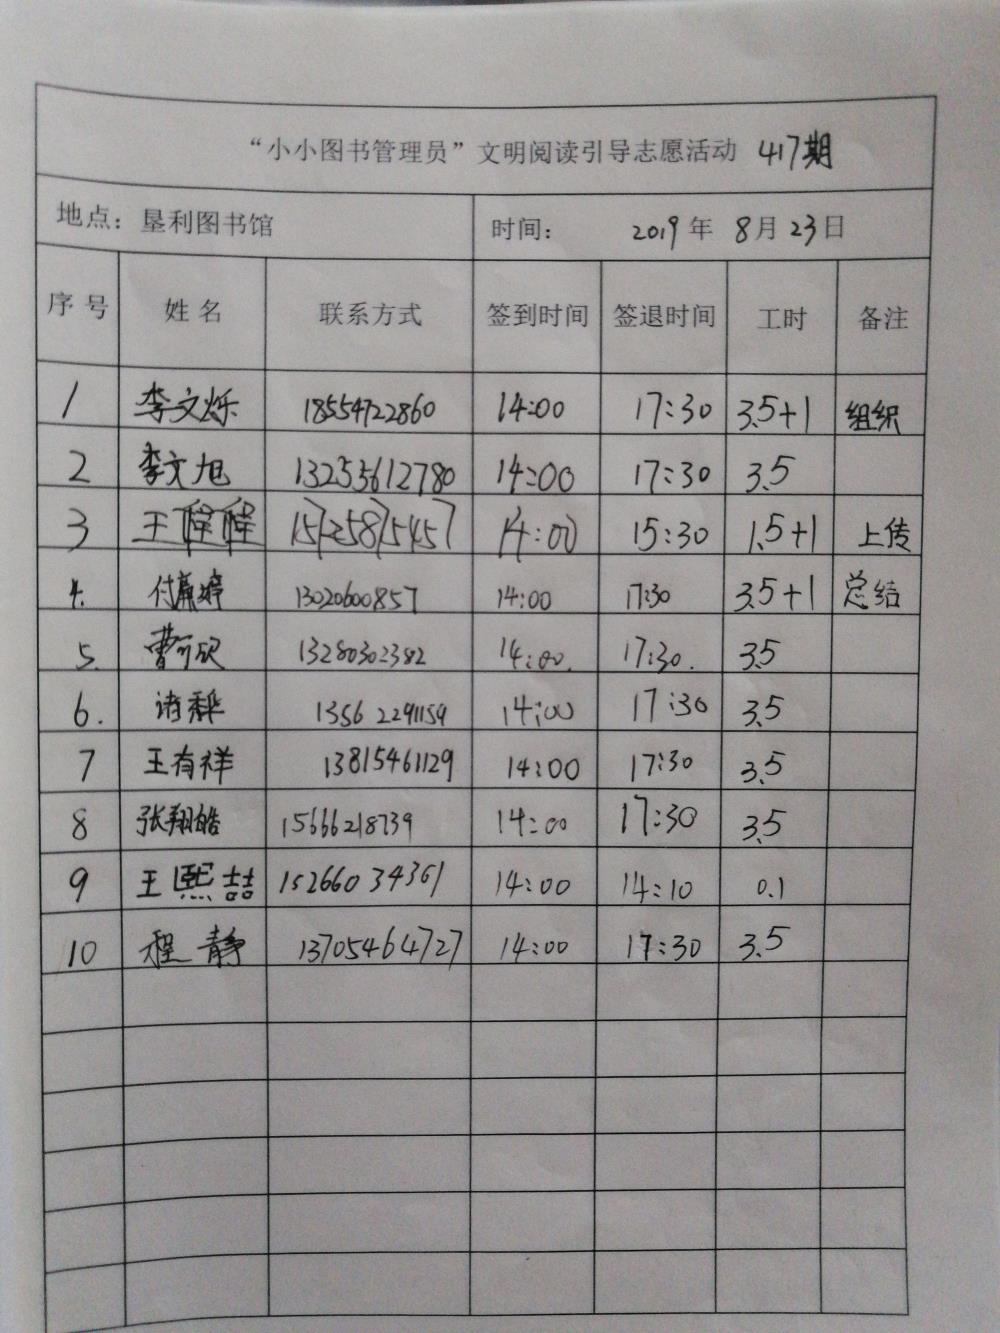 “小小图书管理员”文明阅读引导志愿活动 417期
地点：垦利图书馆 时间： 2019年 8月23日
序号 姓名 联系方式 签到时间 签退时间 工时 备注
1 李文烁 18554722860 14:00 17:30 3.5+1 组织
2 李文旭 13255612780 14:00 17:30 3.5
3 王 15725875457 14:00 15:30 1.5+1 上传
4. 付 婷 13020600857 14:00 17:30 3.5+1 总结
5. 曹可欣 13280302382 14:00. 17:30. 3.5
6. 13562291159 14:00 17:30 3.5
7 王有祥 13815461129 14:00 17:30 3.5
8 张翔皓 15666218739 14:00 17:30 3.5
9 王熙喆 15266034361 14:00 14:10 0.1
10 程静 13705464727 14:00 17:30 3.5